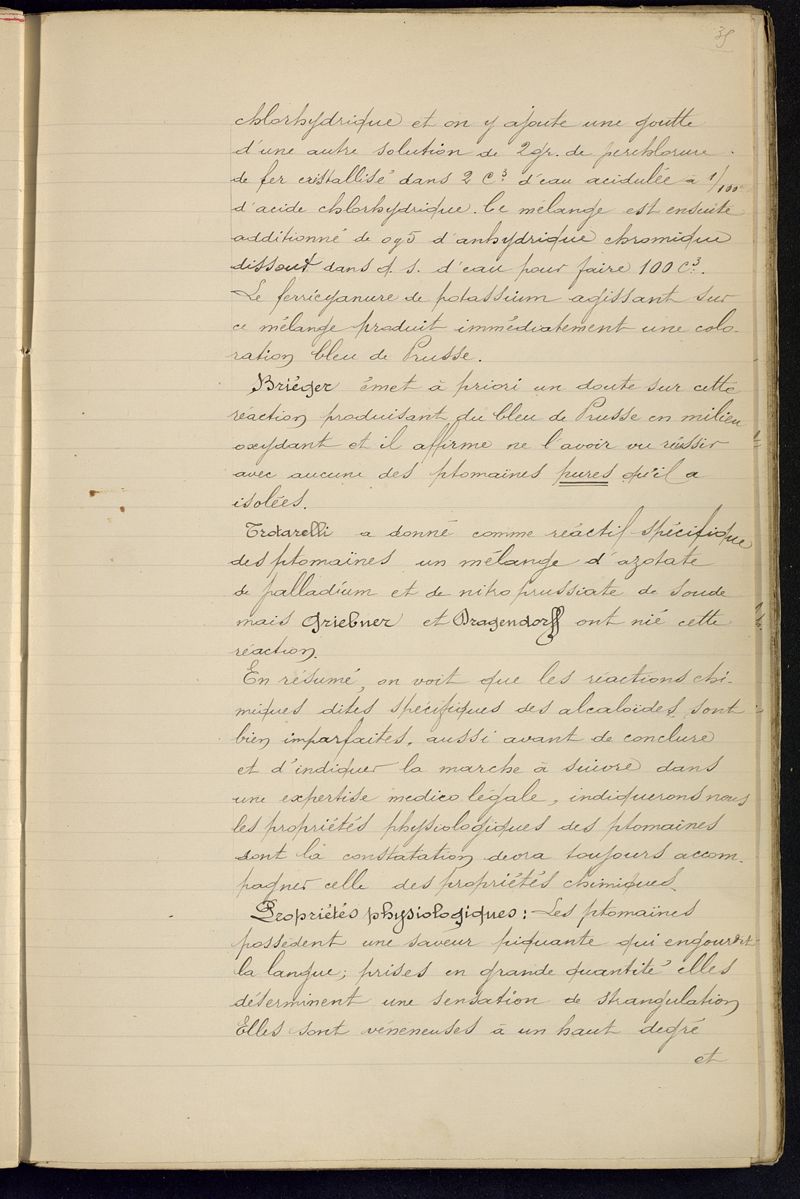 35
chlorhydrique et on y ajoute une goutte
d'une autre solution de 2gr. de perchlorure
de fer cristallisé dans 2 C³ d'eau acidulée à 1/100
d'acide chlorhydrique. Ce mélange est ensuite
additionné de 0g5 d'anhydrique chromique
dissout dans q. s. d'eau pour faire 100 C³.
Le ferricyanure de potassium agissant sur
ce mélange produit immédiatement une colo-
ration bleu de Prusse.
Briéger émet à priori un doute sur cette
réaction produisant du bleu de Prusse en milieu
oxydant et il affirme ne l'avoir vu réussir
avec aucune des ptomaïnes pures qu'il a
isolées.
Trotarelli a donné comme réactif spécifique
des ptomaïnes un mélange d'azotate
de palladium et de nitroprussiate de soude
mais Griebner et Dragendorff ont nié cette
réaction.
En résumé, on voit que les réactions chi-
miques dites spécifiques des alcaloïdes sont
bien imparfaites, aussi avant de conclure
et d'indiquer la marche à suivre dans
une expertise médico légale, indiquerons nous
les propriétés physiologiques des ptomaïnes
dont la constatation devra toujours accom-
pagner celle des propriétés chimiques.
Propriétés physiologiques: Les ptomaïnes
possèdent une saveur piquante qui engourdit
la langue; prises en grande quantité elles
déterminent une sensation de strangulation
Elles sont vénéneuses à un haut degré
et